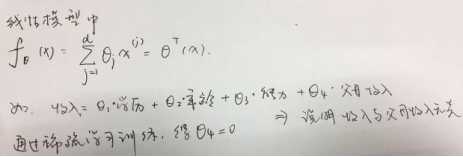 线性模型中
f_θ(x) = Σ_{j=1}^{d} θ_j x^{(j)} = θ^T(x).
如. 收入 = θ₁·学历 + θ₂·年龄 + θ₃·能力 + θ₄·父母收入
通过稀疏学习训练,得θ₄=0 ⇒ 说明收入与父母收入无关